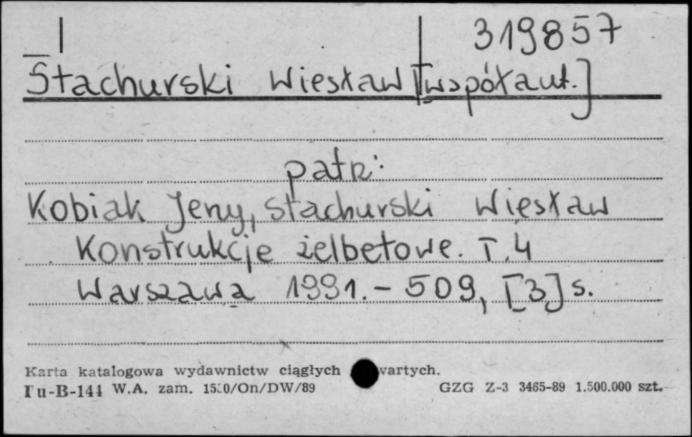 319857
Stachurski Wiesław [współaut.]
patrz:
Kobiak Jerzy, Stachurski Wiesław
Konstrukcje żelbetowe. T. 4
Warszawa 1991. - 509, [3] s.
Karta katalogowa wydawnictw ciągłych wartych.
Pu-B-141 W.A. zam. 15 0/On/DW/89 GZG Z-3 3465-89 1.500.000 szt.